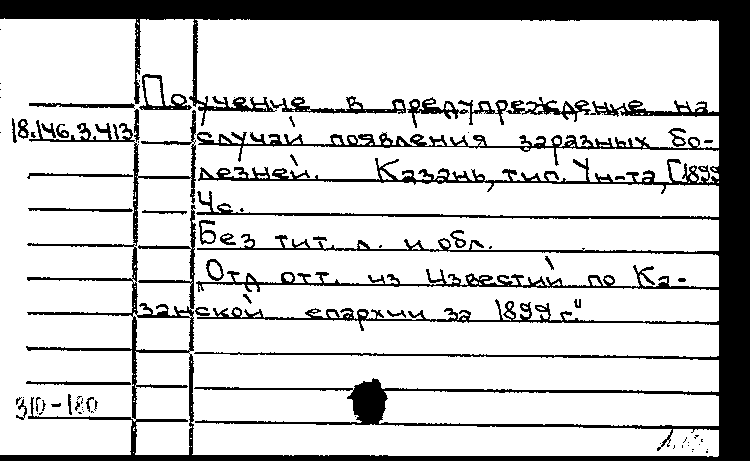 Поучение в предупреждение на
18.146.3.413
случай появления заразных бо-
лезней. Казань, тип. Ун-та, [1899
4с.
Без тит. л. и обл.
„Отд отт. из Известий по Ка-
занской епархии за 1899 г."
310-180